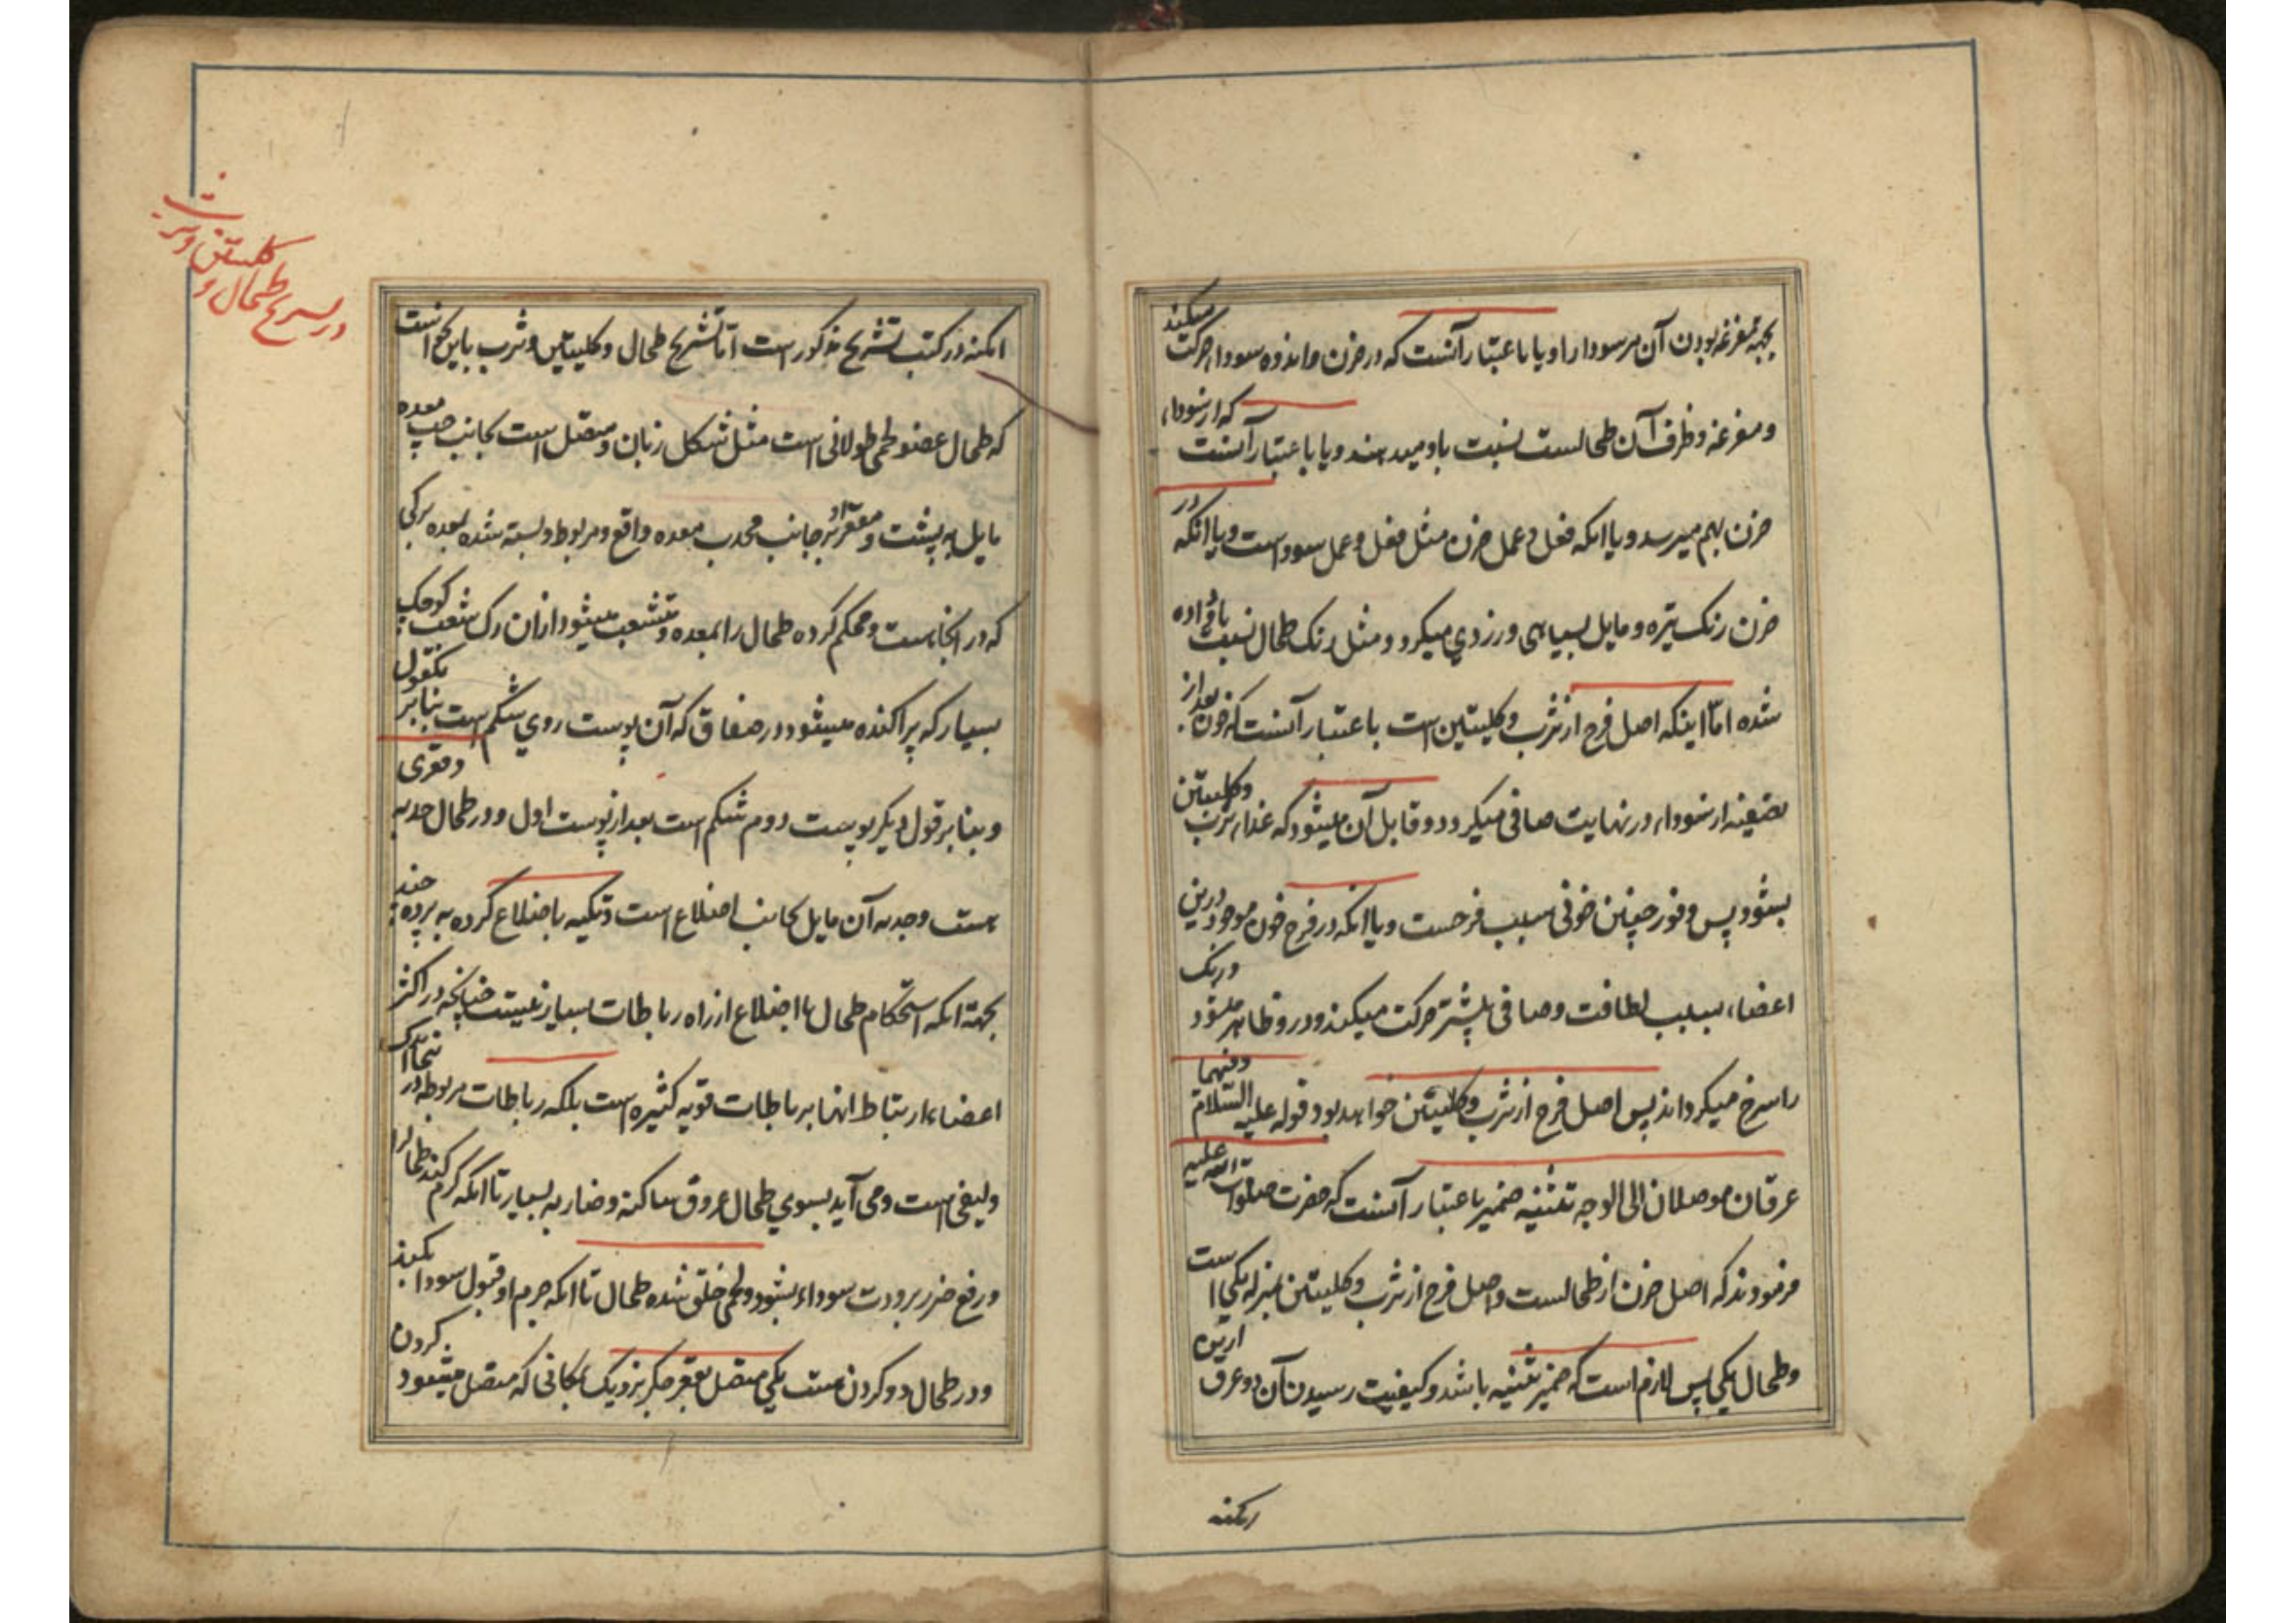 بجهة مفرغه بودن آن مر سودا را و یا باعتبار آنست که در حزن و اندوه سودا حرکت میکند
و مفرغه و ظرف آن طحالست نسبت باو میدهند و یا باعتبار آنست که از سوداء
حزن بهم میرسد و یا انکه فعل و عمل حزن مثل فعل و عمل سودا است و یا انکه در
حزن رنک تیره و مایل بسیاهی و زردی میکردد و مثل رنک طحال نسبت باو داده
شده اما اینکه اصل فرح از ثرب و کلیتین است باعتبار آنست که خون بعد از
تصفیه از سوداء در نهایت صافی میکردد و قابل آن میشود که غذاء ثرب و کلیتین
بشود پس وفور چنین خونی سبب فرحست و یا انکه در فرح خون موجود درین
اعضاء بسبب لطافت و صافی بیشتر حرکت میکند و در رو ظاهر میشود و رنک
را سرخ میکرداند پس اصل فرح از ثرب و کلیتین خواهد بود قوله علیه السلام و منهما
عرقان موصلان الی الوجه تثنیه ضمیر باعتبار آنست که حضرت صلوات الله علیه
فرمودند که اصل حزن از طحالست و اصل فرح از ثرب و کلیتین بمنزله یکی است
و طحال یکی پس لازم است که ضمیر تثنیه باشد و کیفیت رسیدن آن دو عرق ازین
امکنه
امکنه در کتب تشریح مذکور است اما تشریح طحال و کلیتین و ثرب باین نحو است
که طحال عضو لحمی طولانی است مثل شکل زبان و متصل است بجانب چپ معده
مایل به پشت و مقعر او بر جانب محدب معده واقع و مربوط و بسته شده بمعده برکی
که در انجاست و محکم کرده طحال را بمعده و متشعب میشود از ان رک شعب کوچک
بسیار که پراکنده میشود در صفاق که آن پوست روی شکم است بنابر یکقول
و بنابر قول دیکر پوست دوم شکم است بعد از پوست اول و در طحال حدبه و مقعری
هست و حدبه آن مایل بجانب اضلاع است و تکیه باضلاع کرده به پرده چند
بجهة انکه استحکام طحال با اضلاع از راه رباطات بسیار نیست چنانچه در اکثر
اعضاء ارتباط انها برباطات قویه کثیره است بلکه رباطات مربوطه در نجا اندک
و لیفی است و می آید بسوی طحال عروق ساکنه و ضاربه بسیار تا انکه کرم کند طحال را
و رفع ضرر برودت سوداء بشود و لحمی خلق شده طحال تا انکه جرم او قبول سودا بکند
و در طحال دو کردن هست یکی متصل بمقعر جکر نزدیک بمکانی که متصل میشود کردن
در تشریح طحال و
کلیتین و ثرب